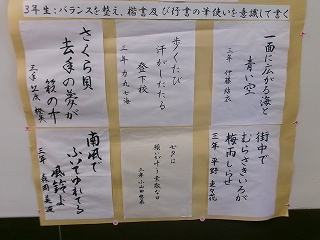 3年生:バランスを整え、楷書及び行書の筆使いを意識して書く
一面に広がる海と
青い空
三年 伊藤 結衣
歩くたび
汗がしたたる
登下校
三年 力丸 七海
さくら貝
去年の夢が
三年
街中で
むらさきいろが
梅雨しらせ
三年 平野
七夕は
願いが叶う素敵な日
三年 小山田
南風で
ふいてゆれてる
風鈴よ
三年 森岡